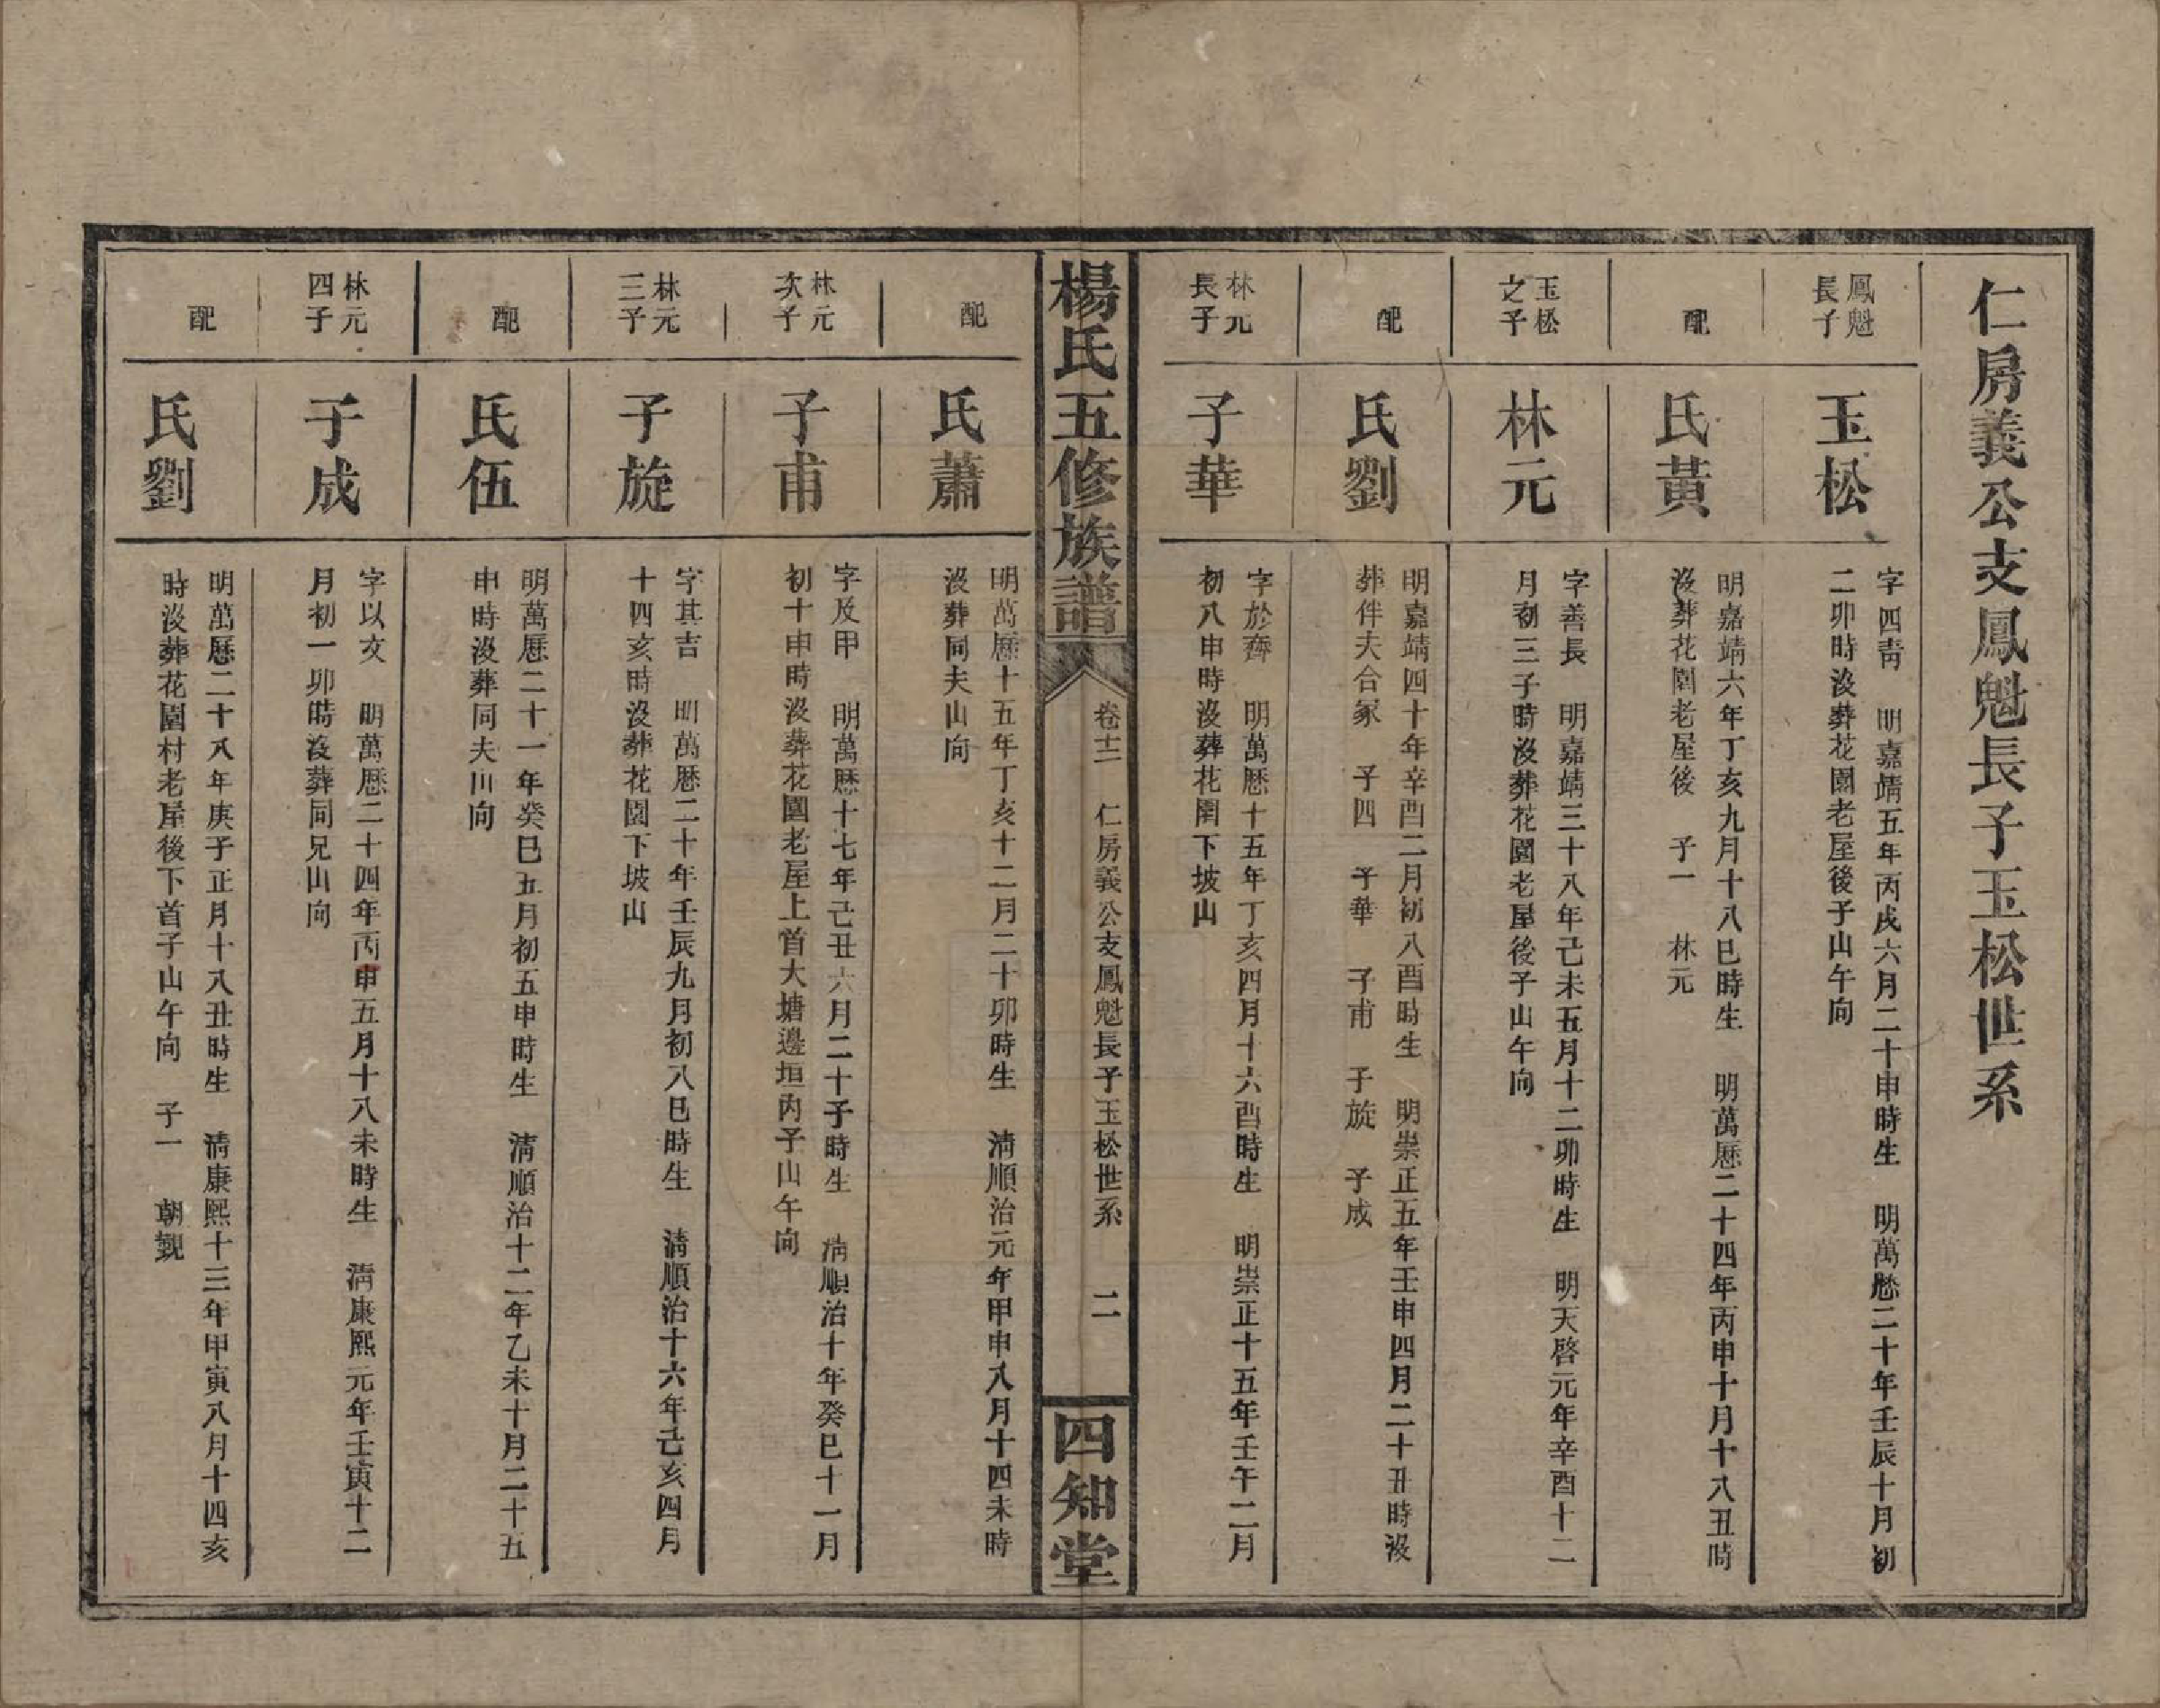 仁房義公支鳳魁長子玉松世系
鳳魁
長子
玉松
字四靑　明嘉靖五年丙戌六月二十申時生　明萬懸二十年壬辰十月初
二卯時沒葬花園老屋後子山午向
配
氏黃
明嘉靖六年丁亥九月十八巳時生　明萬懸二十四年丙申十月十八丑時
沒葬花園老屋後　子一　林元
玉松
之子
林元
字善長　明嘉靖三十八年己未五月十二卯時生　明天啓元年辛酉十二
月初三子時沒葬花園老屋後子山午向
配
氏劉
明嘉靖四十年辛酉二月初八酉時生　明崇正五年壬申四月二十丑時沒
葬伴夫合冢　子四　子華　子甫　子旋　子成
林元
長子
子華
字於齊　明萬懸十五年丁亥四月十六酉時生　明崇正十五年壬午二月
初八申時沒葬花園下坡山
楊氏五修族譜
卷十二　仁房義公支鳳魁長子玉松世系　二
四知堂
配
氏蕭
明萬懸十五年丁亥十二月二十卯時生　淸順治元年甲申八月十四未時
沒葬同夫山向
林元
次子
子甫
字及甲　明萬懸十七年己丑六月二十子時生　淸順治十年癸巳十一月
初十申時沒葬花園老屋上首大塘邊垣內子山午向
林元
三子
子旋
字其吉　明萬懸二十年壬辰九月初八巳時生　淸順治十六年己亥四月
十四亥時沒葬花園下坡山
配
氏伍
明萬懸二十一年癸巳五月初五申時生　淸順治十二年乙未十月二十五
申時沒葬同夫山向
林元
四子
子成
字以文　明萬懸二十四年丙申五月十八未時生　淸康熙元年壬寅十二
月初一卯時沒葬同兄山向
配
氏劉
明萬懸二十八年庚子正月十八丑時生　淸康熙十三年甲寅八月十四亥
時沒葬花園村老屋後下首子山午向　子一　朝覲